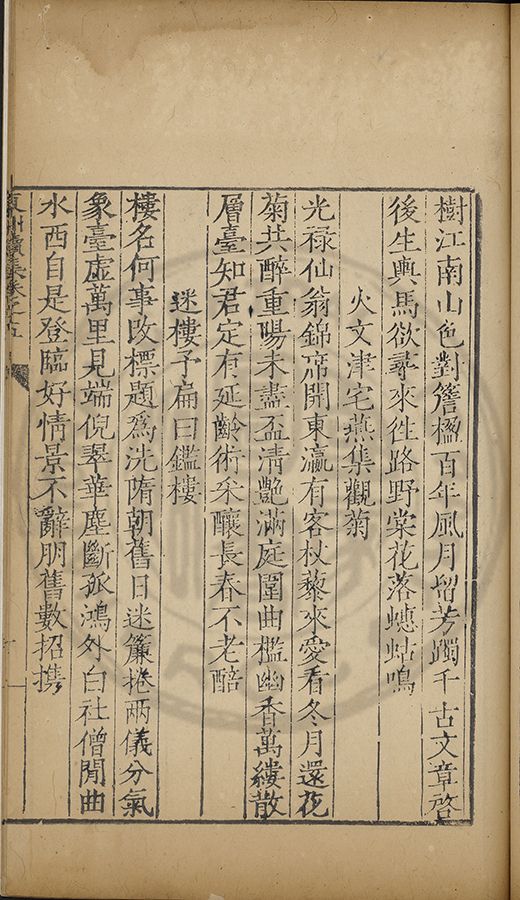 樹江南山色對簷楹百年風月留芳躅千古文章啓
後生輿馬欲尋來徃路野棠花落蟪蛄鳴
火文津宅燕集觀菊
光祿仙翁錦席開東瀛有客杖藜來愛看冬月還花
菊共醉重陽未盡盃清艷滿庭圍曲檻幽香萬縷散
層臺知君定有延齡術采釀長春不老醅
迷樓予扁曰鑑樓
樓名何事改標題爲洗隋朝舊日迷簾捲兩儀分氣
象臺虛萬里見端倪翠華塵斷孤鴻外白社僧閒曲
水西自是登臨好情景不辭朋舊數招携